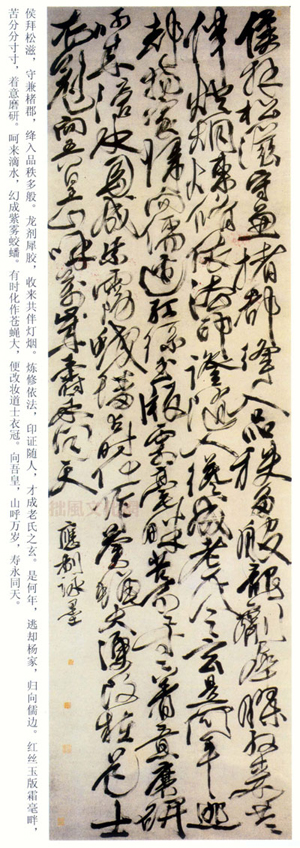 侯拜松滋守兼楮郡絳入品秩多般龍劑犀膠收來共
伴燈烟煉修依法印證隨人才成老氏之玄是何年逃
却楊家歸向儒邊紅絲玉版霜毫畔苦分分寸寸着意磨研
呵來滴水幻成紫霧蛟蟠有時化作蒼蠅大便改妝道士
衣冠向吾皇山呼萬歲壽永同天
應制詠墨
侯拜松滋，守兼楮郡，绛入品秩多般。龙剂犀胶，收来共伴灯烟。炼修依法，印证随人，才成老氏之玄。是何年，逃却杨家，归向儒边。红丝玉版霜毫畔，
苦分分寸寸，着意磨研。呵来滴水，幻成紫雾蛟蟠。有时化作苍蝇大，便改妆道士衣冠。向吾皇，山呼万岁，寿永同天。